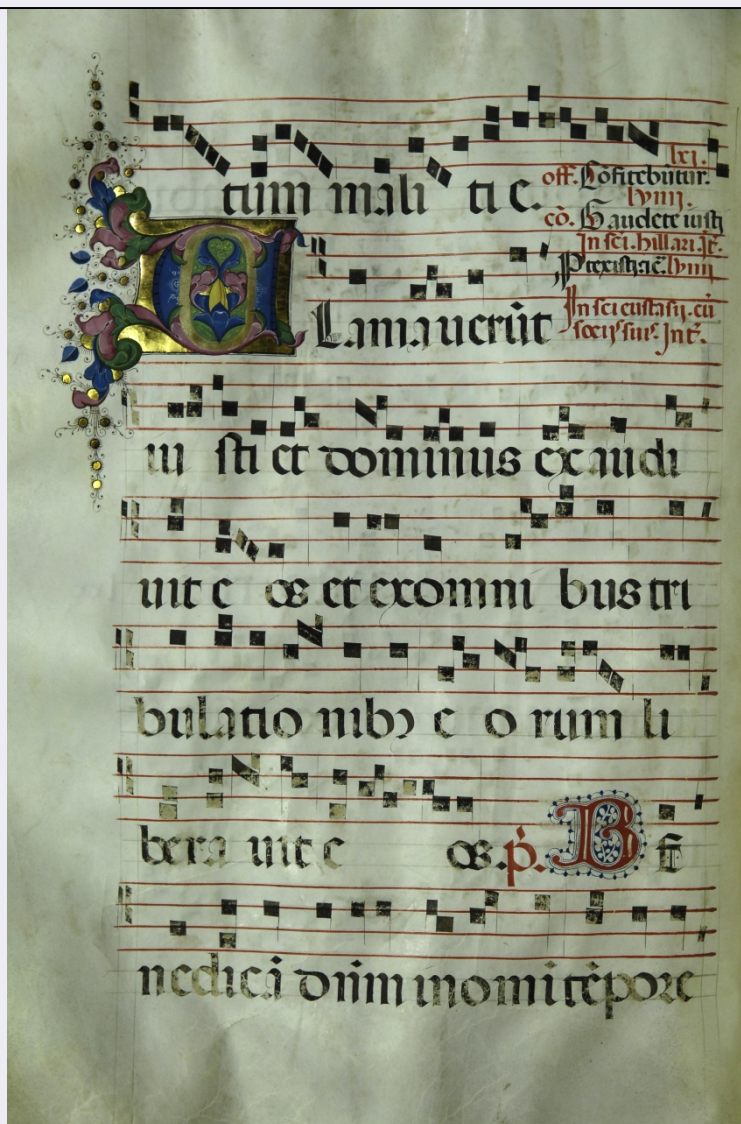 tum mali ti e.
lxj.
off. Cōfitebūtur.
lviiij.
cō. Gaudete iusti
In sci. hillari. īt.
lviiij
In sci eustasij. cū
socijs suis. Int.
Clamauerūt
iu sti et dominus exaudi
uit e os et ex omni bus tri
bulatio nibꝫ e o rum li
bera uit e os. p̄. B n̄
nedicā dn̄m in omi tēpore